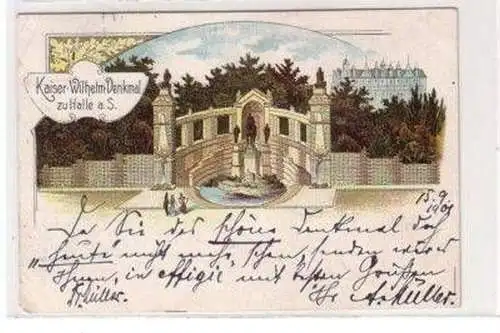 Kaiser-Wilhelm-Denkmal
zu Halle a. S.
15. 9.
1901
Da Sie das schöne Denkmal doch
"heute" nicht mehr sehen, senden wir es
Ihnen, in effigie mit besten Grüßen
Dr. Müller. Ihr A. Müller.